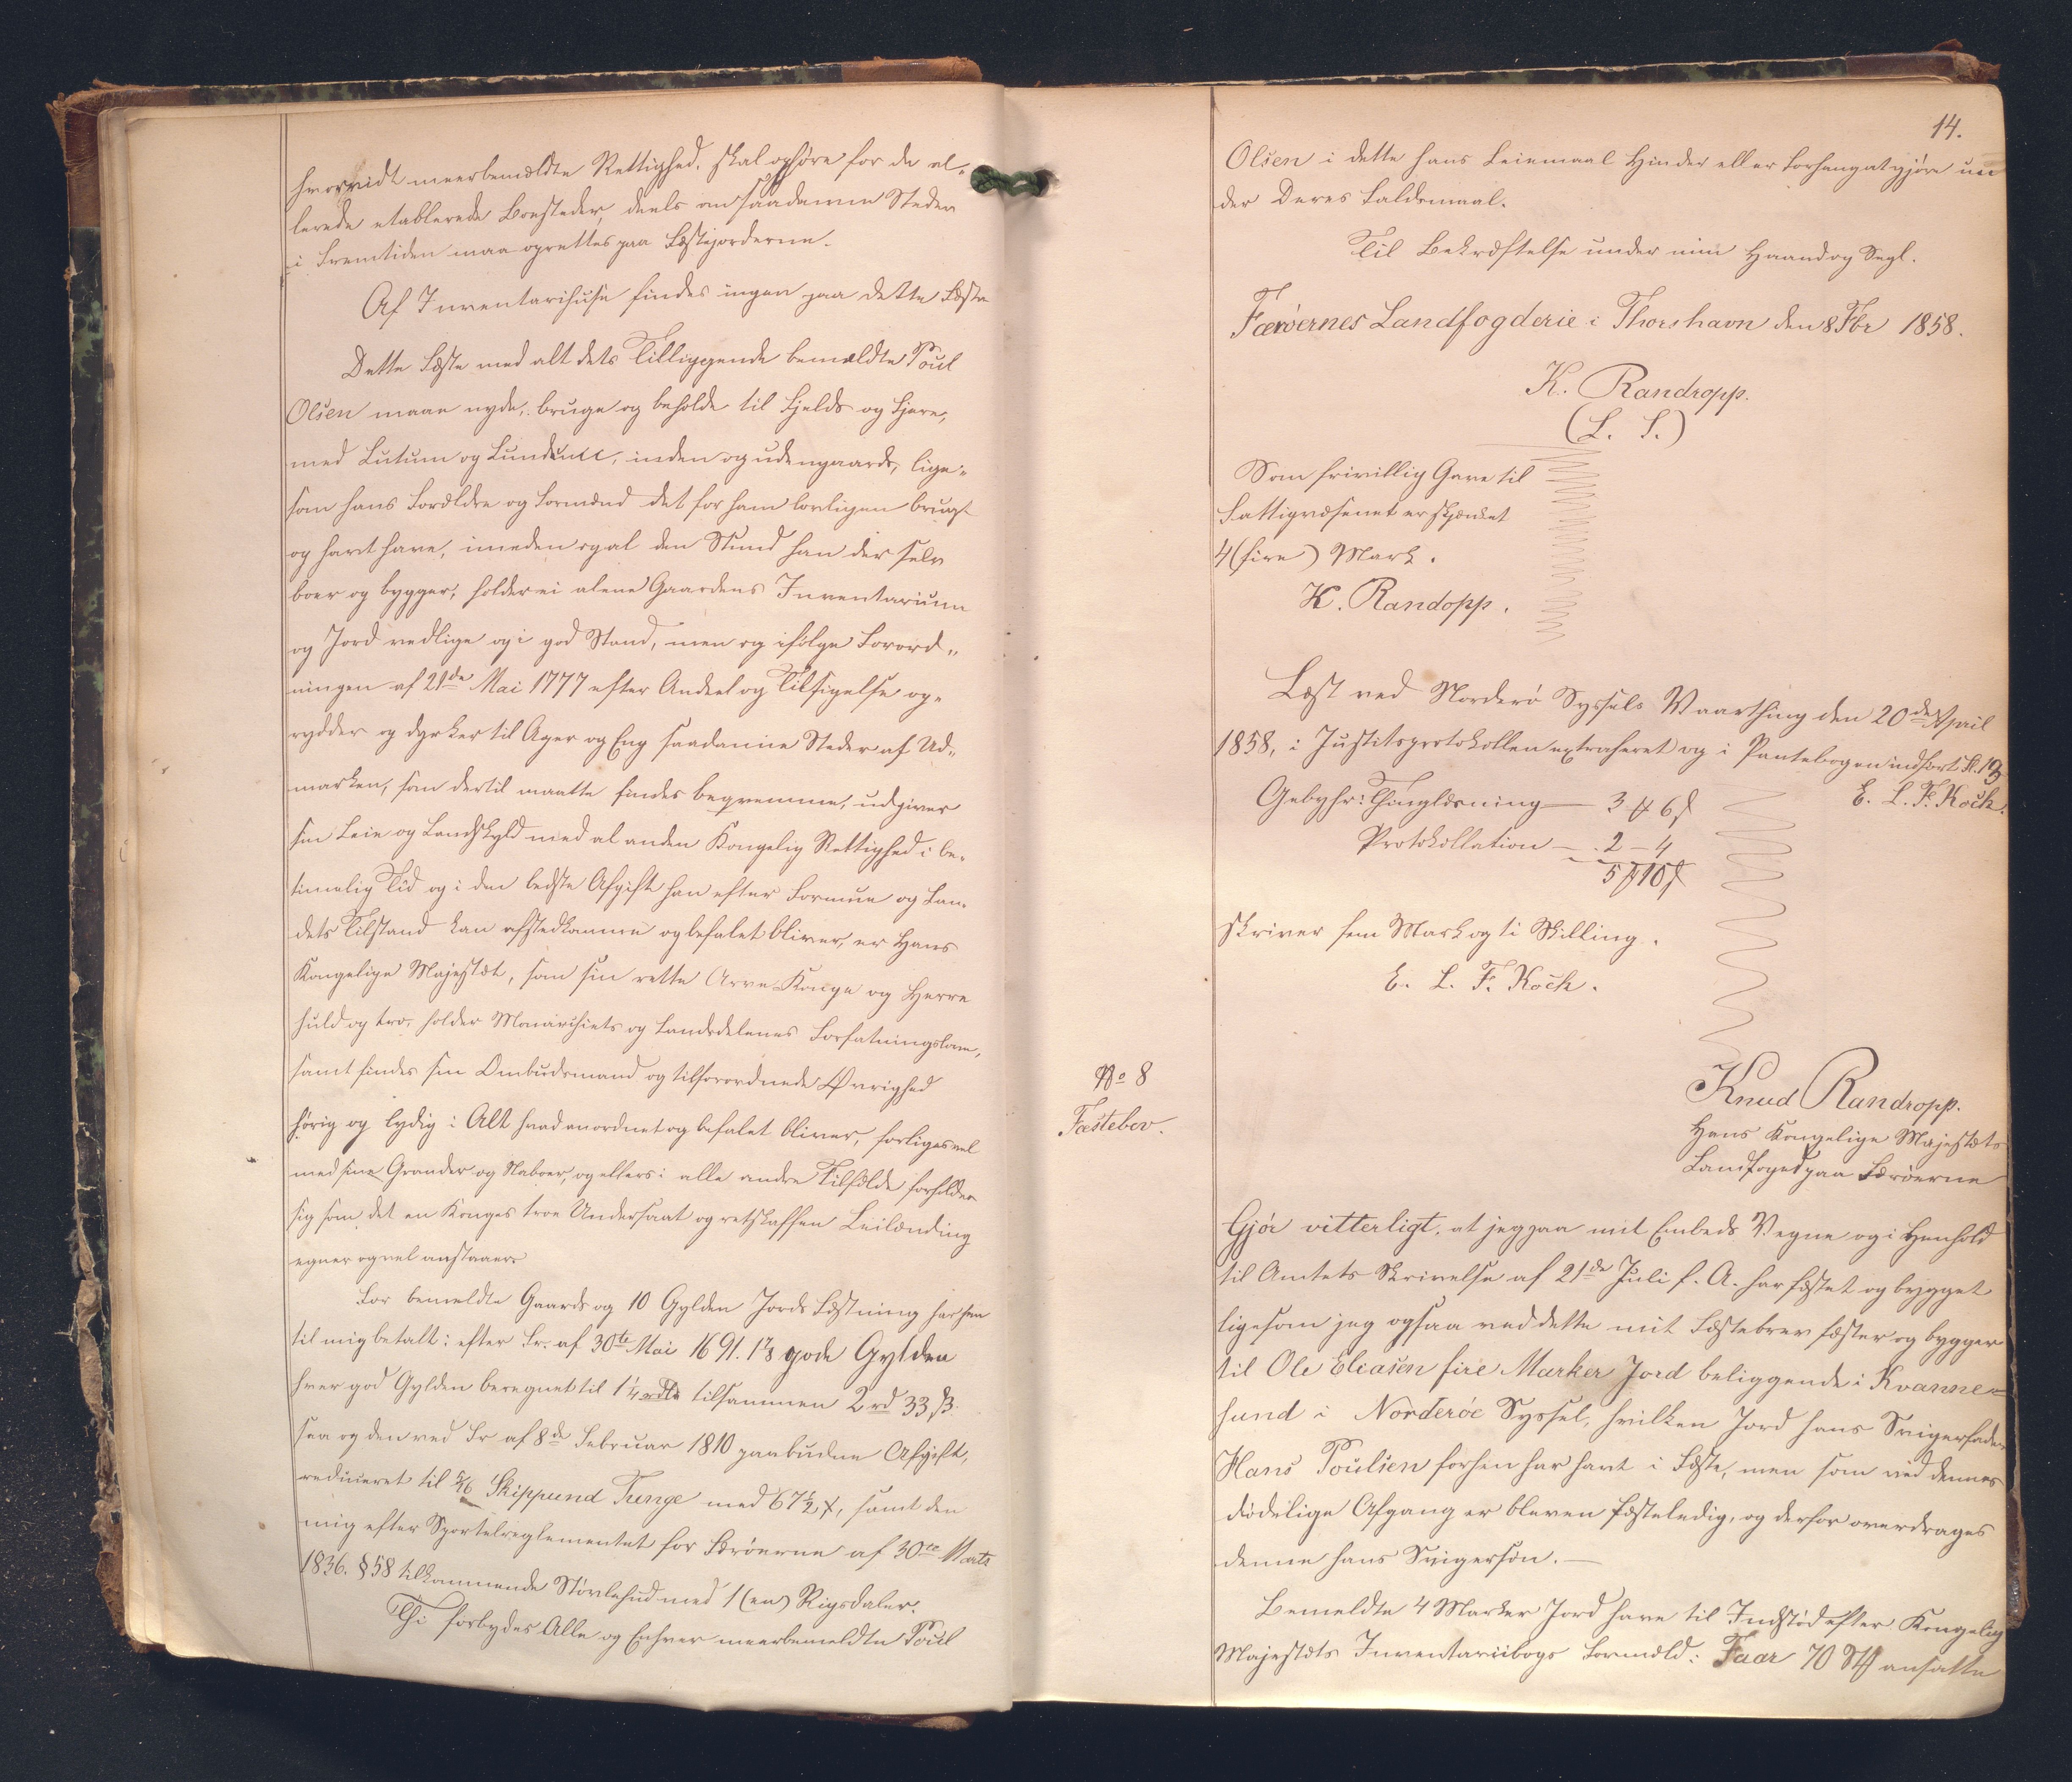 hvorvidt meerbemeldte Rettighed, skal ophøre for de al-
lerede etablerede Boesteder, deels om saadanne Steder
i Fremtiden maa oprettes paa Festejorderne.
Af Inventarihuse findes ingen paa dette Feste
Dette Feste med alt dets Tilliggende bemeldte Poul
Olsen maae nyde, bruge og beholde til Fjelds og Fjere,
med Lutum og Lundum, inden og udengaards, lige-
som hans Forældre og Formænd det for ham lovligen brugt
og havt have, imeden og al den Stund han der selv
boer og bygger, holder ei alene Gaardens Inventarium
og Jord vedlige og i god Stand, men og ifølge Forord-
ningen af 21de Mai 1777 efter Andeel og Tilsigelse op-
rydder og dyrker til Ager og Eng saadanne Steder af Ud-
marken, som dertil maatte findes beqvemme, udgiver
sin Leie og Landskyld med al anden Kongelig Rettighed i be-
timelig Tid og i den bedste Afgift han efter Formue og Lan-
dets Tilstand kan afstedkomme og befalet bliver, er Hans
Kongelige Majestæt, som sin rette Arve Konge og Herre
huld og tro, holder Monarchiets og Landsdelenes Forfatningslove,
samt findes sin Ombudsmand og tilforordnede Øvrighed
hørig og lydig i Alt hvad anordnet og befalet bliver, forliges vel
med sine Grander og Naboer, og ellers i alle andre Tilfælde forholder
sig som det en Konges troe Undersaat og retskaffen Leilænding
egner og vel anstaaer.
For bemeldte Gaards og 10 Gylden Jords Festning har han
til mig betalt: efter Fr. af 30te Mai 1691. 1⅞ gode Gylden
hver god Gylden beregnet til 1¼ rdlr tilsammen 2 rd 33 ß.
saa og den ved Fr af 8de Februar 1810 paabudne Afgift,
reduceret til 5/16 Skippund Tunge med 67½ ß, samt den
mig efter Sportelreglementet for Færøerne af 30te Marts
1836. § 58 tilkommende Støvlehud med 1 (en) Rigsdaler.
Thi forbydes Alle og Enhver meerbemeldte Poul
14.
Olsen i dette hans Leiemaal Hinder eller Forfang at gjøre un
der Deres Faldsmaal.
Til Bekræftelse under min Haand og Segl.
Færøernes Landfogderie i Thorshavn den 8 Fbr 1858.
K. Randropp.
(L. S.)
Som frivillig Gave til
Fattigvæsenet er skjænket
4 (fire) Mark.
K. Randopp.
Læst ved Norderø Syssels Vaarthing den 20de April
1858, i Justitsprotokollen extraheret og i Pantebogen indført Fl. 13
E. L. F. Koch.
Gebyhr: Thinglæsning — 3 ₻ 6 ß
Protokollation — 2 – 4
5 ₻ 10 ß
skriver fem Mark og ti Skilling.
E. L. F. Koch.
No 8
Festebrev.
Knud Randropp.
Hans Kongelige Majestæts
Landfoged paa Færøerne
Gjør vitterligt, at jeg paa mit Embeds Vegne og i Henhold
til Amtets Skrivelse af 21de Juli f. A. har fæstet og bygget
ligesom jeg ogsaa ved dette mit Festebrev fæster og bygger
til Ole Eliasen fire Marker Jord beliggende i Kvanne-
sund i Norderøe Syssel, hvilken Jord hans Svigerfader
Hans Poulsen forhen har havt i Feste, men som ved dennes
dødelige Afgang er bleven festeledig, og derfor overdrages
denne hans Svigersøn. —
Bemeldte 4 Marker Jord have til Indstød efter Kongelig
Majestæts Inventariibogs Formeld: Faar 70 Stk ansatte